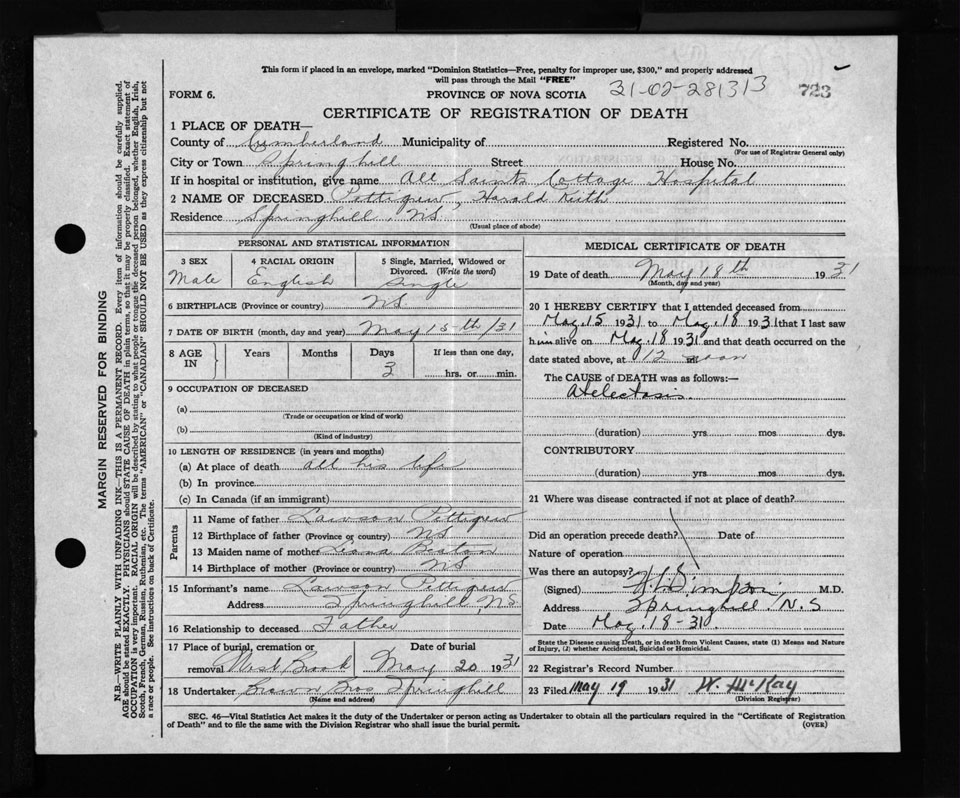 This form if placed in an envelope, marked "Dominion Statistics—Free, penalty for improper use, $300," and properly addressed
will pass through the Mail "FREE"
FORM 6. PROVINCE OF NOVA SCOTIA 31-02-281313 723
CERTIFICATE OF REGISTRATION OF DEATH
1 PLACE OF DEATH—
County of Cumberland Municipality of Registered No.
(For use of Registrar General only)
City or Town Springhill Street House No.
If in hospital or institution, give name All Saints Cottage Hospital
2 NAME OF DECEASED Pettigrew, Harold Keith
Residence Springhill, NS
(Usual place of abode)
PERSONAL AND STATISTICAL INFORMATION
3 SEX 4 RACIAL ORIGIN 5 Single, Married, Widowed or
Divorced. (Write the word)
Male English Single
6 BIRTHPLACE (Province or country) NS
7 DATE OF BIRTH (month, day and year) May 15th/31
8 AGE IN Years Months Days If less than one day,
3 hrs. or min.
9 OCCUPATION OF DECEASED
(a)
(Trade or occupation or kind of work)
(b)
(Kind of industry)
10 LENGTH OF RESIDENCE (in years and months)
(a) At place of death all his life
(b) In province
(c) In Canada (if an immigrant)
Parents
11 Name of father Lawson Pettigrew
12 Birthplace of father (Province or country) NS
13 Maiden name of mother Beaton
14 Birthplace of mother (Province or country) NS
15 Informant's name Lawson Pettigrew
Address Springhill NS
16 Relationship to deceased Father
17 Place of burial, cremation or Date of burial
removal West Brook May 20 1931
18 Undertaker Brown Bros Springhill
(Name and address)
MEDICAL CERTIFICATE OF DEATH
19 Date of death May 18th 1931
(Month, day and year)
20 I HEREBY CERTIFY that I attended deceased from
May 15 1931 to May 18 1931 that I last saw
him alive on May 18 1931 and that death occurred on the
date stated above, at 12 noon
The CAUSE of DEATH was as follows:—
Atelectasis.
(duration) yrs mos dys.
CONTRIBUTORY
(duration) yrs. mos dys.
21 Where was disease contracted if not at place of death?
Did an operation precede death? Date of
Nature of operation
Was there an autopsy?
(Signed) Simpson M.D.
Address Springhill. N.S
Date May 18-31
State the Disease causing Death, or in death from Violent Causes, state (1) Means and Nature
of Injury, (2) whether Accidental, Suicidal or Homicidal.
22 Registrar's Record Number
23 Filed May 19 1931 W. McKay
(Division Registrar)
SEC. 46—Vital Statistics Act makes it the duty of the Undertaker or person acting as Undertaker to obtain all the particulars required in the "Certificate of Registration
of Death" and to file the same with the Division Registrar who shall issue the burial permit. (OVER)
MARGIN RESERVED FOR BINDING
N.B.—WRITE PLAINLY WITH UNFADING INK—THIS IS A PERMANENT RECORD. Every item of information should be carefully supplied.
AGE should be stated EXACTLY. PHYSICIANS should STATE CAUSE OF DEATH in plain terms, so that it may be properly classified. Exact statement of
OCCUPATION is very important. RACIAL ORIGIN will be described by stating to what people or tongue the deceased person belonged, whether English, Irish,
Scotch, French, German, Russian, Ruthenian, etc. The terms "AMERICAN" or "CANADIAN" SHOULD NOT BE USED as they express citizenship but not
a race or people. See instructions on back of Certificate.